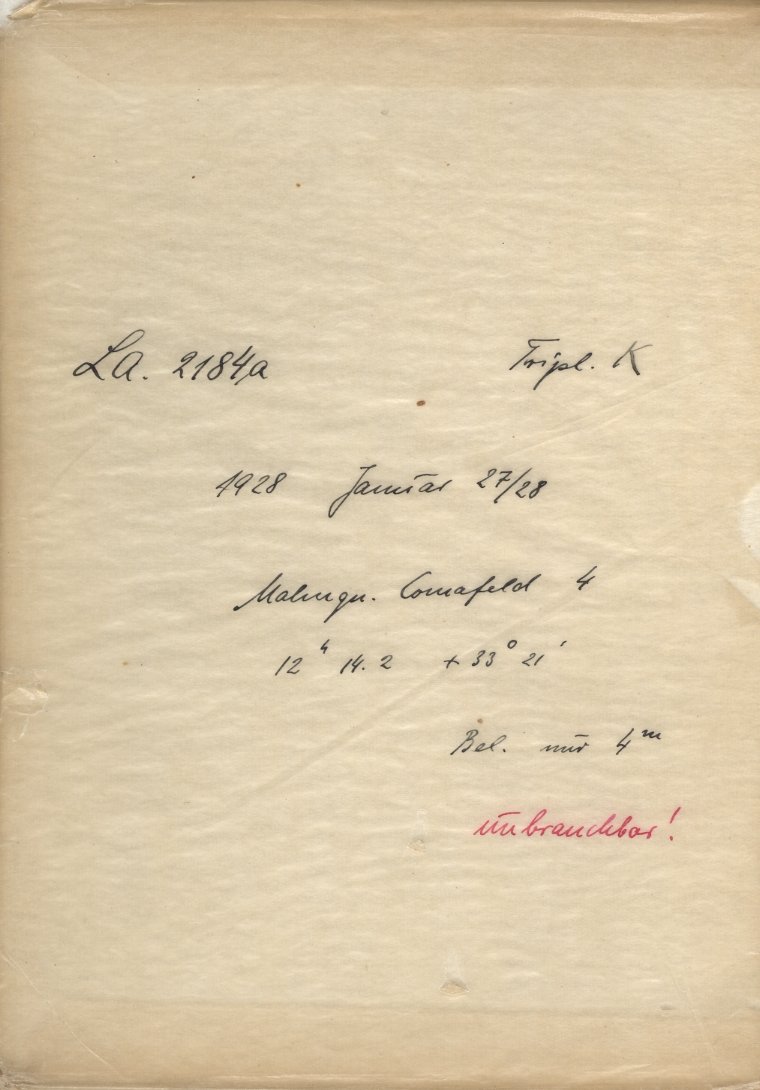 LA. 2184a Tripl. K
1928 Januar 27/28
Malmqu. Comafeld 4
12ʰ 14.2 + 33° 21'
Bel. nur 4ᵐ
unbrauchbar!